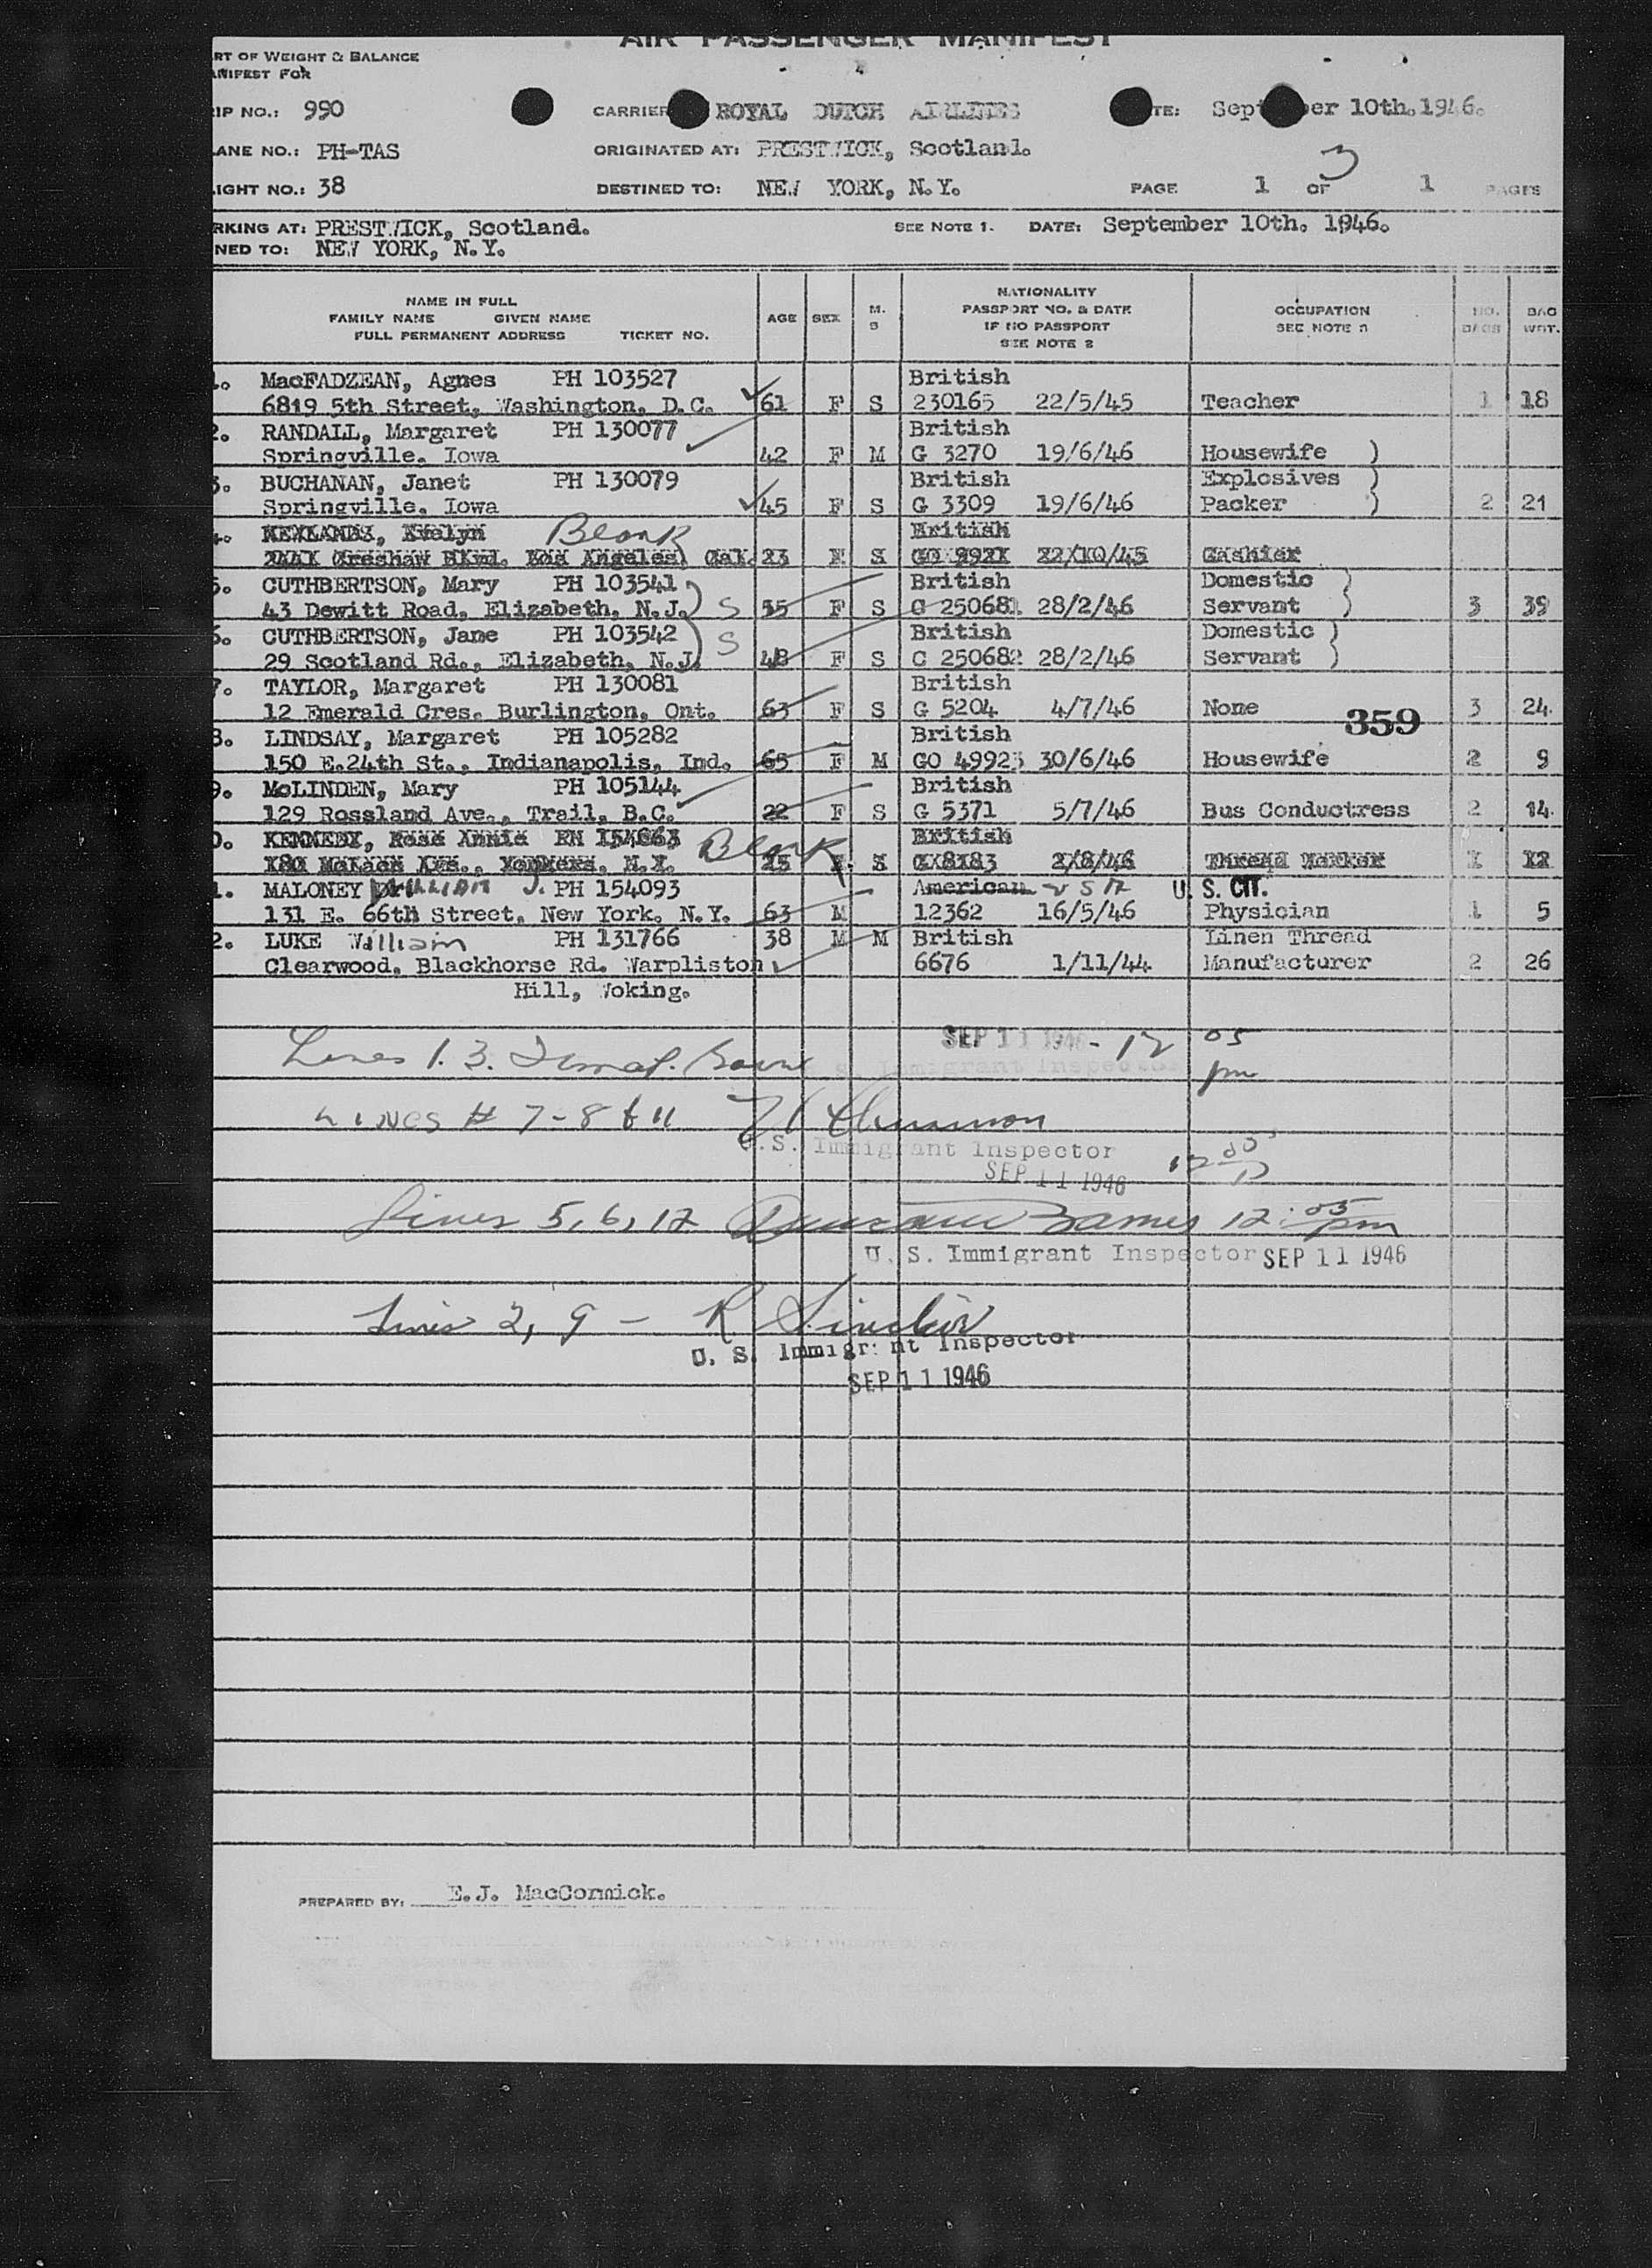 AIR PASSENGER MANIFEST
RT OF WEIGHT & BALANCE
ANIFEST FOR
IP NO.: 990 CARRIER ROYAL DUTCH AIRLINES TE: Sep er 10th. 1946.
ANE NO.: PH-TAS ORIGINATED AT: PRESTWICK, Scotland.
IGHT NO.: 38 DESTINED TO: NEW YORK, N.Y. PAGE 1 OF 3 1 PAGES
RKING AT: PRESTWICK, Scotland. SEE NOTE 1. DATE: September 10th. 1946.
NED TO: NEW YORK, N.Y.
NAME IN FULL
FAMILY NAME GIVEN NAME
FULL PERMANENT ADDRESS TICKET NO.
AGE SEX M. S
NATIONALITY
PASSPORT NO. & DATE
IF NO PASSPORT
SEE NOTE 2
OCCUPATION
SEE NOTE
NO. BAGS
BAG WGT.
. MacFADZEAN, Agnes PH 103527 British
6819 5th Street, Washington, D.C. 61 F S 230165 22/5/45 Teacher 1 18
2. RANDALL, Margaret PH 130077 British
Springville, Iowa 42 F M G 3270 19/6/46 Housewife )
3. BUCHANAN, Janet PH 130079 British Explosives )
Springville, Iowa 45 F S G 3309 19/6/46 Packer ) 2 21
. Evelyn Blank British
Creshaw Blvd. Los Angeles, Cal. 23 F S GO 22/10/45 Cashier
5. CUTHBERTSON, Mary PH 103541 British Domestic )
43 Dewitt Road, Elizabeth, N.J. S 55 F S C 250681 28/2/46 Servant ) 3 39
6. CUTHBERTSON, Jane PH 103542 S British Domestic )
29 Scotland Rd., Elizabeth, N.J. 48 F S C 250682 28/2/46 Servant )
7. TAYLOR, Margaret PH 130081 British
12 Emerald Cres. Burlington, Ont. 63 F S G 5204 4/7/46 None 3 24
359
8. LINDSAY, Margaret PH 105282 British
150 E.24th St., Indianapolis, Ind. 65 F M GO 49923 30/6/46 Housewife 2 9
9. McLINDEN, Mary PH 105144 British
129 Rossland Ave., Trail, B.C. 22 F S G 5371 5/7/46 Bus Conductress 2 14
0. KENNEDY, Rose Annie PH 154663 Blank British
180 McLean Ave., Yonkers, N.Y. 25 F. S 2/8/46 Thread Worker 1 12
1. MALONEY William J. PH 154093 American USA U. S. CIT.
131 E. 66th Street, New York, N.Y. 63 M 12362 16/5/46 Physician 1 5
2. LUKE William PH 131766 38 M M British Linen Thread
Clearwood, Blackhorse Rd. Warpliston 6676 1/11/44 Manufacturer 2 26
Hill, Woking.
Lines 1. 3. SEP 11 1946 - 12 05 pm
S. Immigrant Inspector
LINES # 7-8 & 11
U.S. Immigrant Inspector
SEP 11 1946
Lines 5, 6, 12 James 12:05 pm
U. S. Immigrant Inspector SEP 11 1946
Lines 2, 9 - R Sinclair
U. S. Immigrant Inspector
SEP 11 1946
PREPARED BY: E.J. MacCormick.